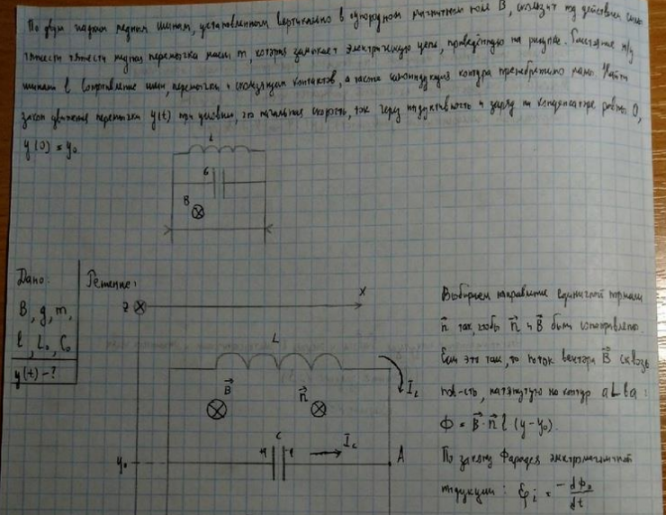 По двум гладким медным шинам, установленным вертикально в однородном магнитном поле B, скользит под действием силы
тяжести тяжести медная перемычка массы m, которая замыкает электрическую цепь, приведённую на рисунке. Расстояние м/у
шинами l Сопротивление шин, перемычки и скользящих контактов, а также самоиндукция контура пренебрежимо малы. Найти
закон движения перемычки y(t) при условии, что начальная скорость, ток через индуктивность и заряд на конденсаторе равны 0,
y(0) = y₀
L
B
Дано:
B, g, m,
l, L₀, C₀
y(t) - ?
Решение:
Z
X
L
I_L
B⃗
n⃗
C
I_c
y₀
A
Выбираем направление единичной нормали
n⃗ так, чтобы n⃗ и B⃗ были
Если это так, то поток вектора B⃗ сквозь
пов-сть, натянутую на контур aLba:
Ф = B⃗ · n⃗ l (y-y₀)
По закону Фарадея электромагнитной
индукции: